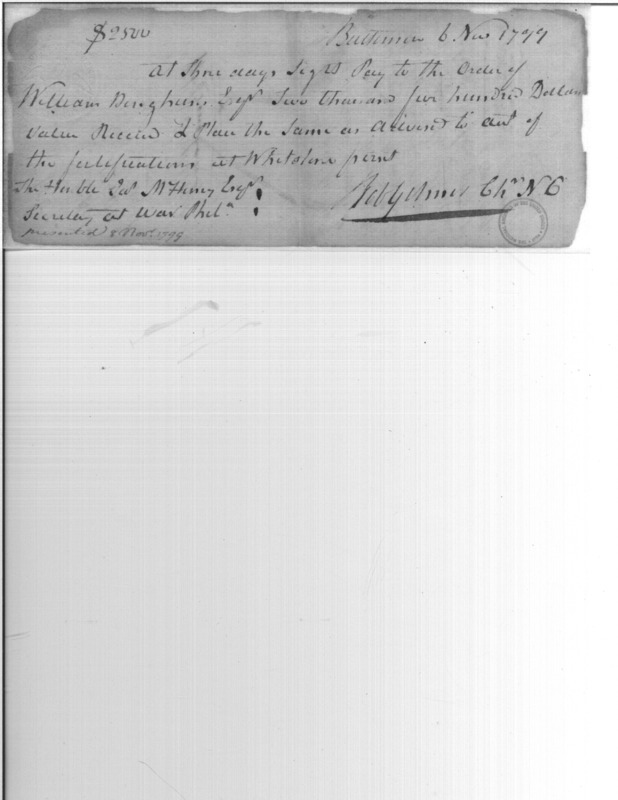 $2500 Baltimore 6 Nov 1799
At three days Sight Pay to the Order of
William Bingham Esqr Two thousand five hundred Dollars
value Received & Place the same as advised to acct of
the fortifications at Whetstone point
The Honble Jas McHenry Esqr
Secretary at War Phila Ch N C
presented 8 Novr 1799